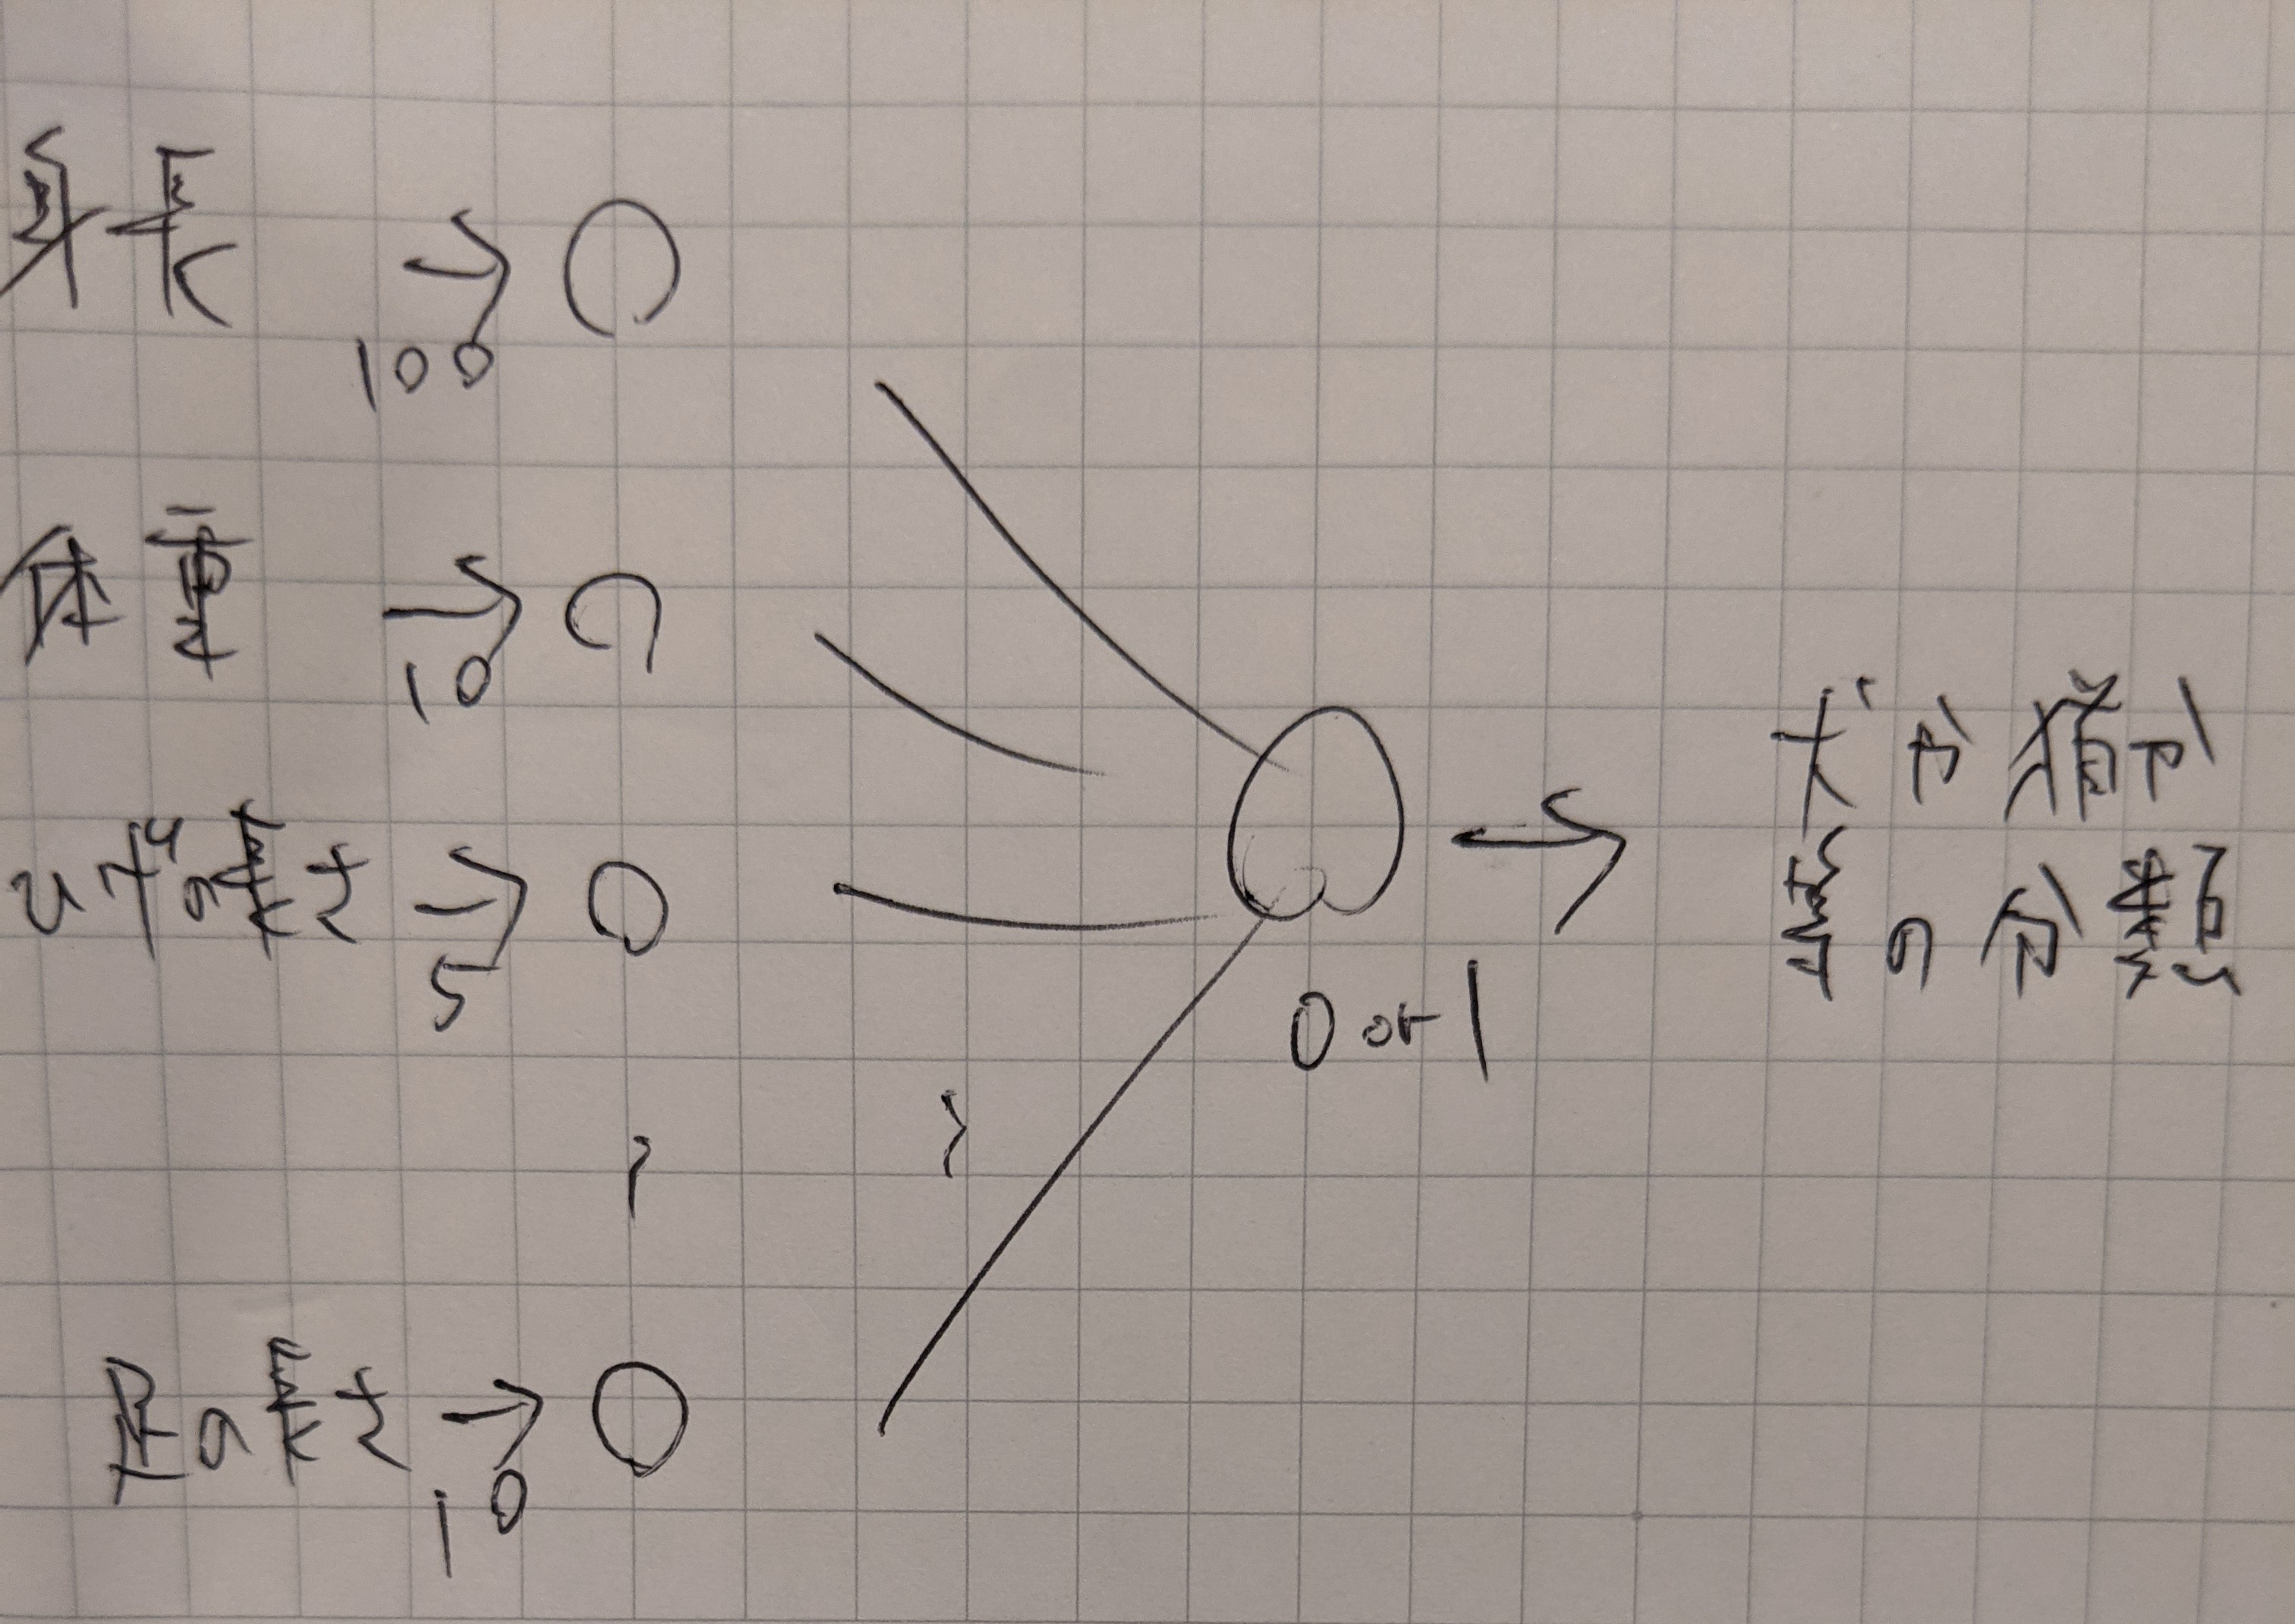 身長
100
体重
10
ひげの長さ
5
足の長さ
10
0 or 1
犬か猫か
の分類